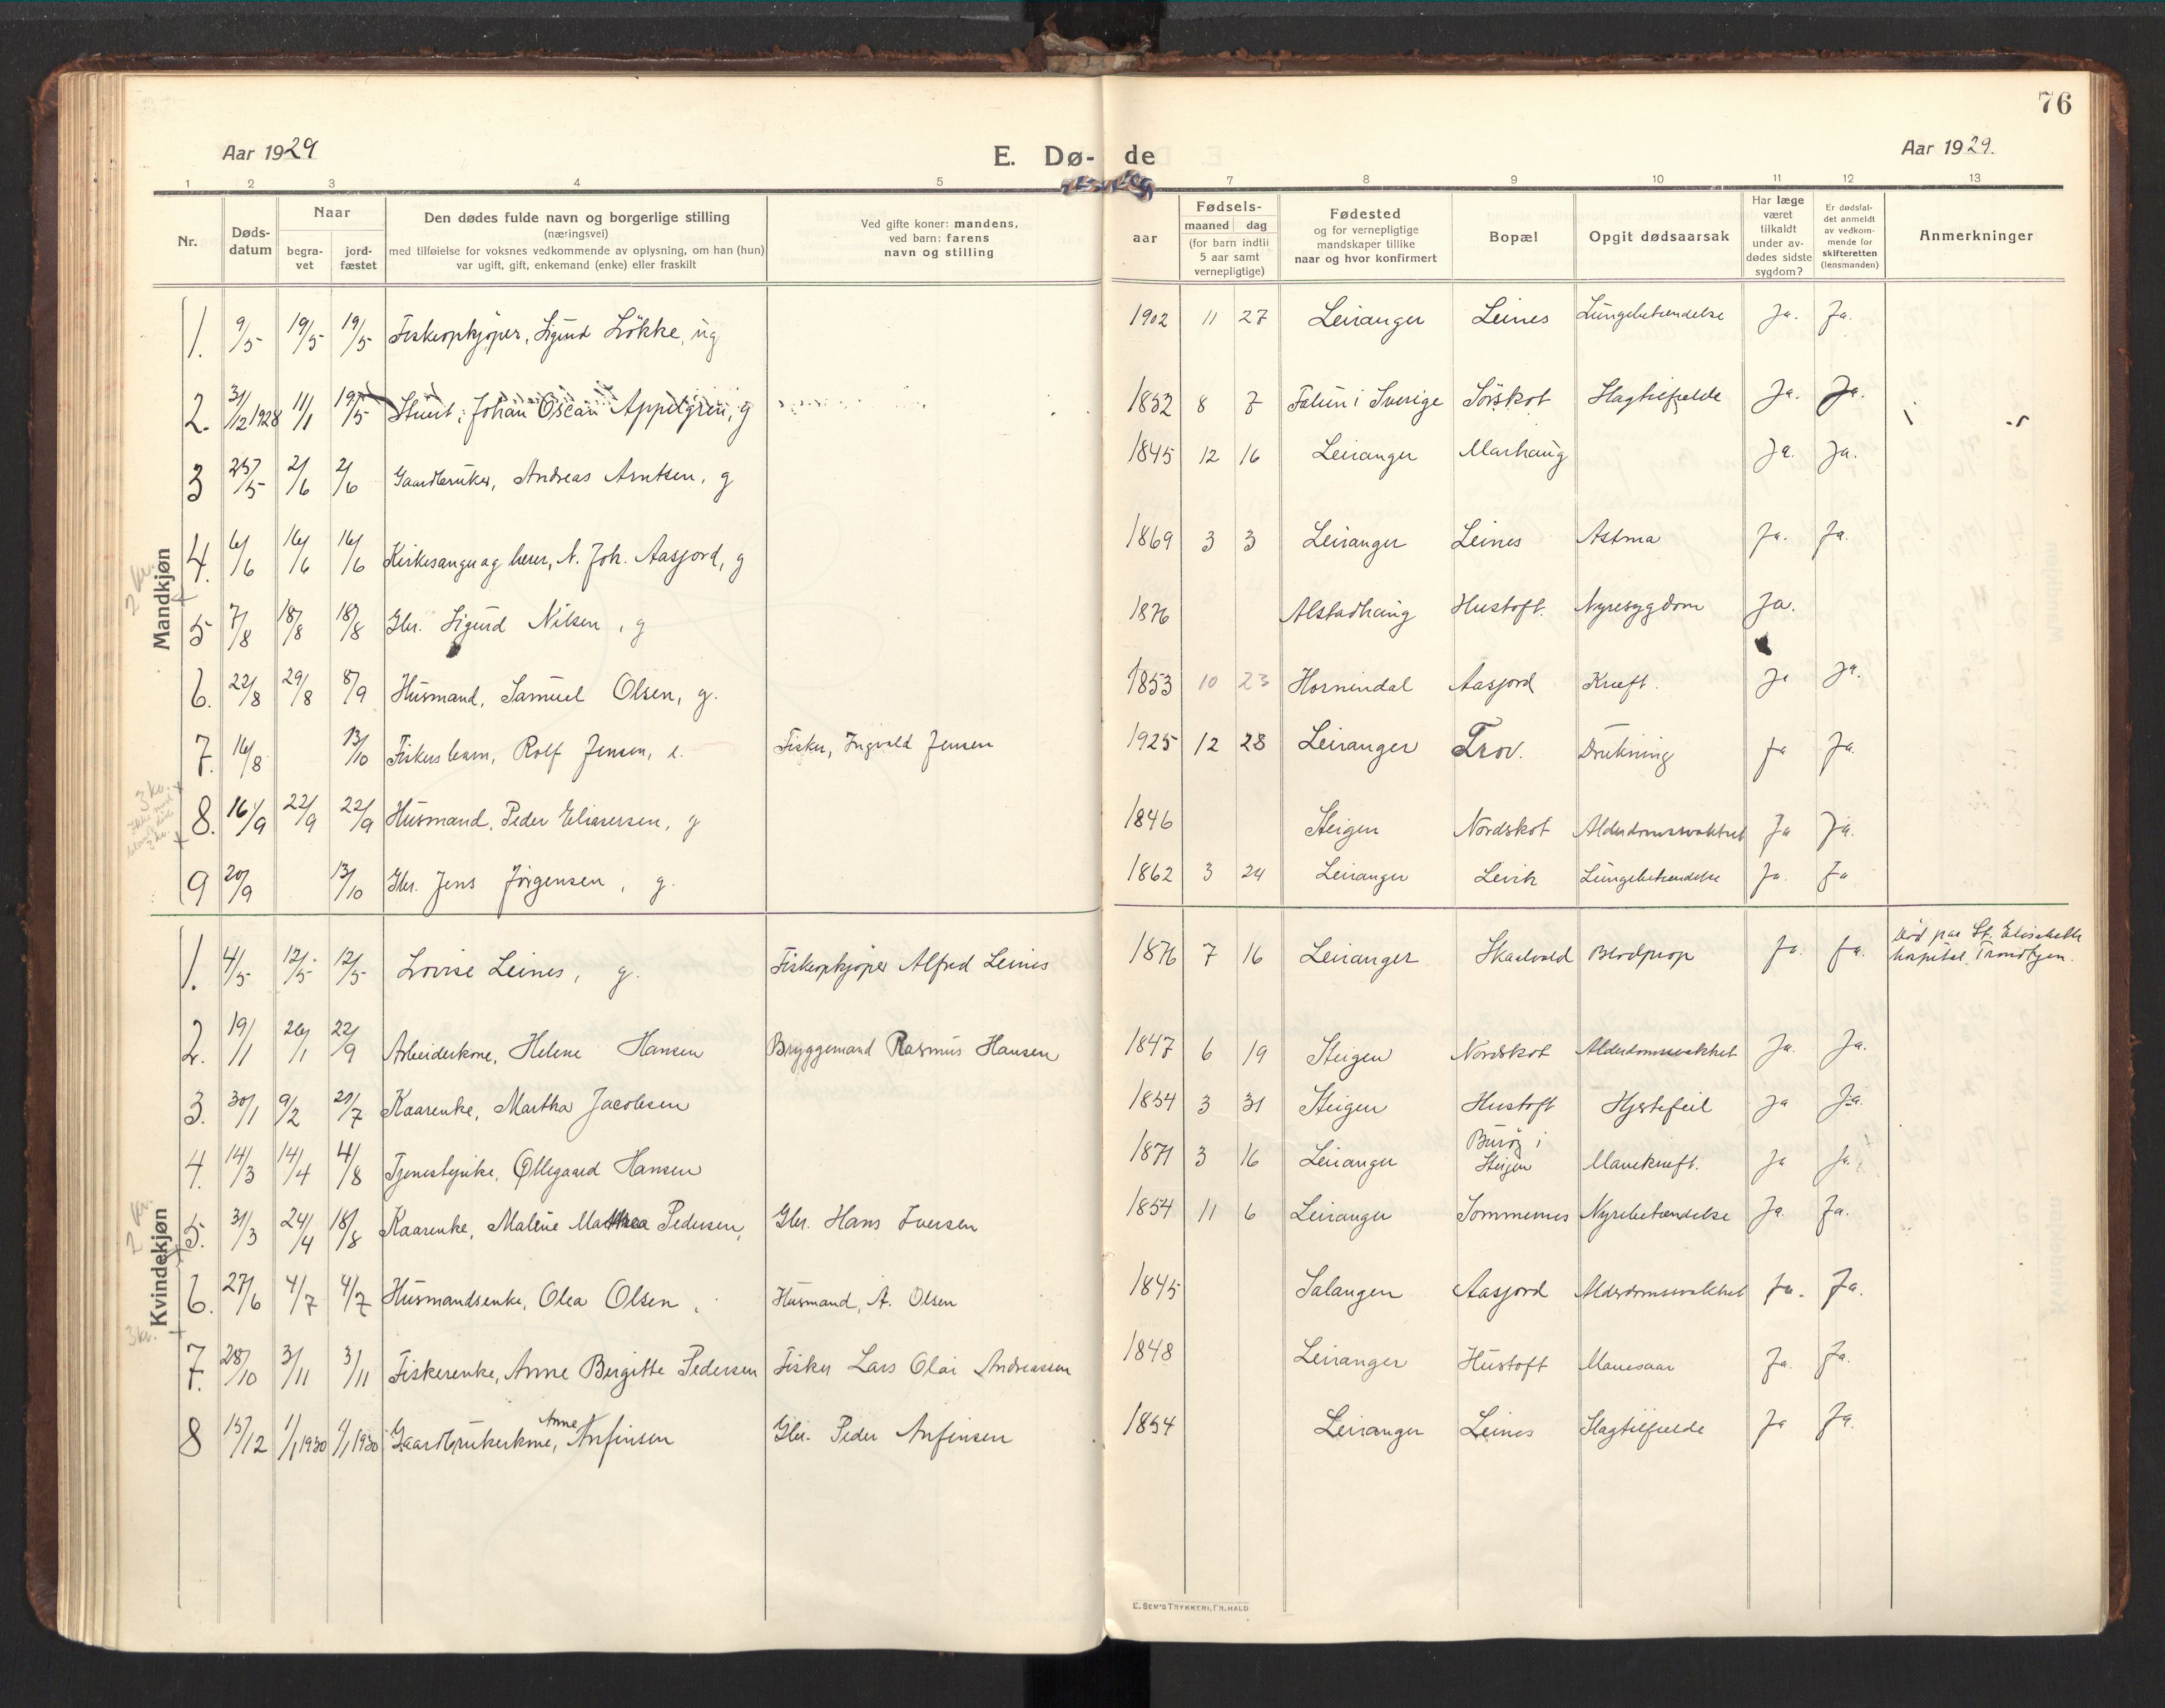 76
Aar 1929
E. Dø- de
Aar 1929.
1 2 3 4 5 7 8 9 10 11 12 13
Nr.
Døds-
datum
Naar
begra-
vet
jord-
fæstet
Den dødes fulde navn og borgerlige stilling
(næringsvei)
med tilføielse for voksnes vedkommende av oplysning, om han (hun)
var ugift, gift, enkemand (enke) eller fraskilt
Ved gifte koner: mandens,
ved barn: farens
navn og stilling
aar
Fødsels-
maaned dag
(for barn indtil
5 aar samt
vernepligtige)
Fødested
og for vernepligtige
mandskaper tillike
naar og hvor konfirmert
Bopæl
Opgit dødsaarsak
Har læge
været
tilkaldt
under av-
dødes sidste
sygdom?
Er dødsfal-
det anmeldt
av vedkom-
mende for
skifteretten
(lensmanden)
Anmerkninger
Mandkjøn
1. 9/5 19/5 19/5 Fiskeopkjøper, Sigurd Løkke, ug 1902 11 27 Leiranger Leines Lungebetændelse Ja. Ja.
2. 31/12 1928 11/1 19/5 Johan Oscar Appelgren, g 1852 8 7 Falun i Sverige Sørskot Slagtilfælde Ja. Ja.
3 25/5 2/6 2/6 Gaardbruker, Andreas Arntsen, g 1845 12 16 Leiranger Marhaug Ja. Ja.
4. 6/6 16/6 16/6 Kirkesanger og lærer, N. Joh. Aasjord, g 1869 3 3 Leiranger Leines Astma Ja. Ja.
5 7/8 18/8 18/8 Gbr. Sigurd Nilsen, g 1876 Alstadhaug Hustoft. Nyresygdom Ja.
6. 22/8 29/8 8/9 Husmand, Samuel Olsen, g. 1853 10 23 Hornindal Aasjord Kræft. Ja Ja.
7. 16/8 13/10 Fiskersbarn, Rolf Jensen, e. Fisker, Ingvald Jensen 1925 12 28 Leiranger Trov. Drukning Ja Ja.
8. 16/9 22/9 22/9 Husmand, Peder Eliasersen, g 1846 Steigen Nordskot Alderdomssvakhet Ja Ja.
9 20/9 13/10 Gbr. Jens Jørgensen, g. 1862 3 24 Leiranger Levik Lungebetændelse Ja. Ja
Kvindekjøn
1. 4/5 12/5 12/5 Lovise Leines, g. Fiskeopkjøper Alfred Leines 1876 7 16 Leiranger Skaalvold Blodprop Ja. Ja. Død paa St. Elisabeth
hospital, Trondhjem.
2. 19/1 26/1 22/9 Arbeiderkone, Helene Hansen Bryggemand Rasmus Hansen 1847 6 19 Steigen Nordskot Alderdomssvakhet Ja. Ja.
3. 30/1 9/2 21/7 Kaarenke, Martha Jacobsen 1854 3 31 Steigen Hustoft Hjertefeil Ja Ja.
4. 14/3 14/4 4/8 Tjenestepike, Øllegaard Hansen 1871 3 16 Leiranger Burøy i
Steigen Mavekræft. Ja Ja.
5. 31/3 24/4 18/8 Kaarenke, Malene Mathea Pedersen, Gbr. Hans Iversen 1854 11 6 Leiranger Sommernes Nyrebetændelse Ja. Ja.
6. 27/6 4/7 4/7 Husmandsenke, Olea Olsen. Husmand, A. Olsen 1845 Salangen Aasjord Alderdomssvakhet Ja. Ja.
7. 28/10 3/11 3/11 Fiskerenke, Anne Bergitte Pedersen Fisker Lars Olai Andreassen 1848 Leiranger Hustoft Mavesaar Ja. Ja.
8 15/12 1/1 1930 1/1 1930 Gaardbrukerkone, Anne Anfinsen Gbr. Peder Anfinsen 1854 Leiranger Leines Slagtilfælde Ja Ja.
2 kr.
3 kr.
2 kr.
3 kr.
E. SEM'S TRYKKERI, FR.HALD